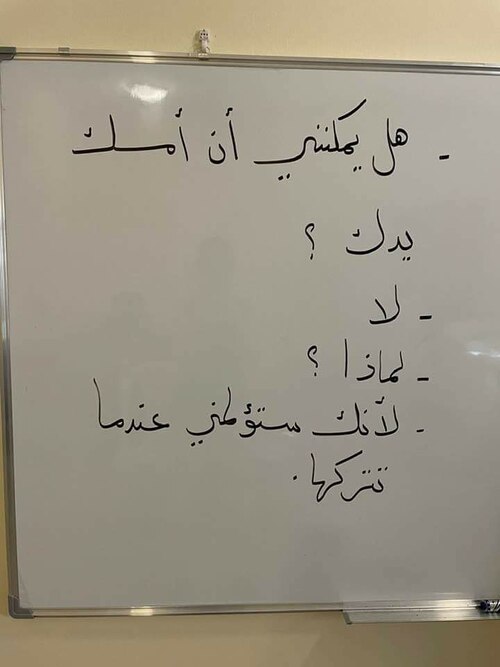 - هل يمكنني أن أمسك
يدك ؟
- لا
- لماذا ؟
- لأنك ستؤلمني عندما
تتركها .